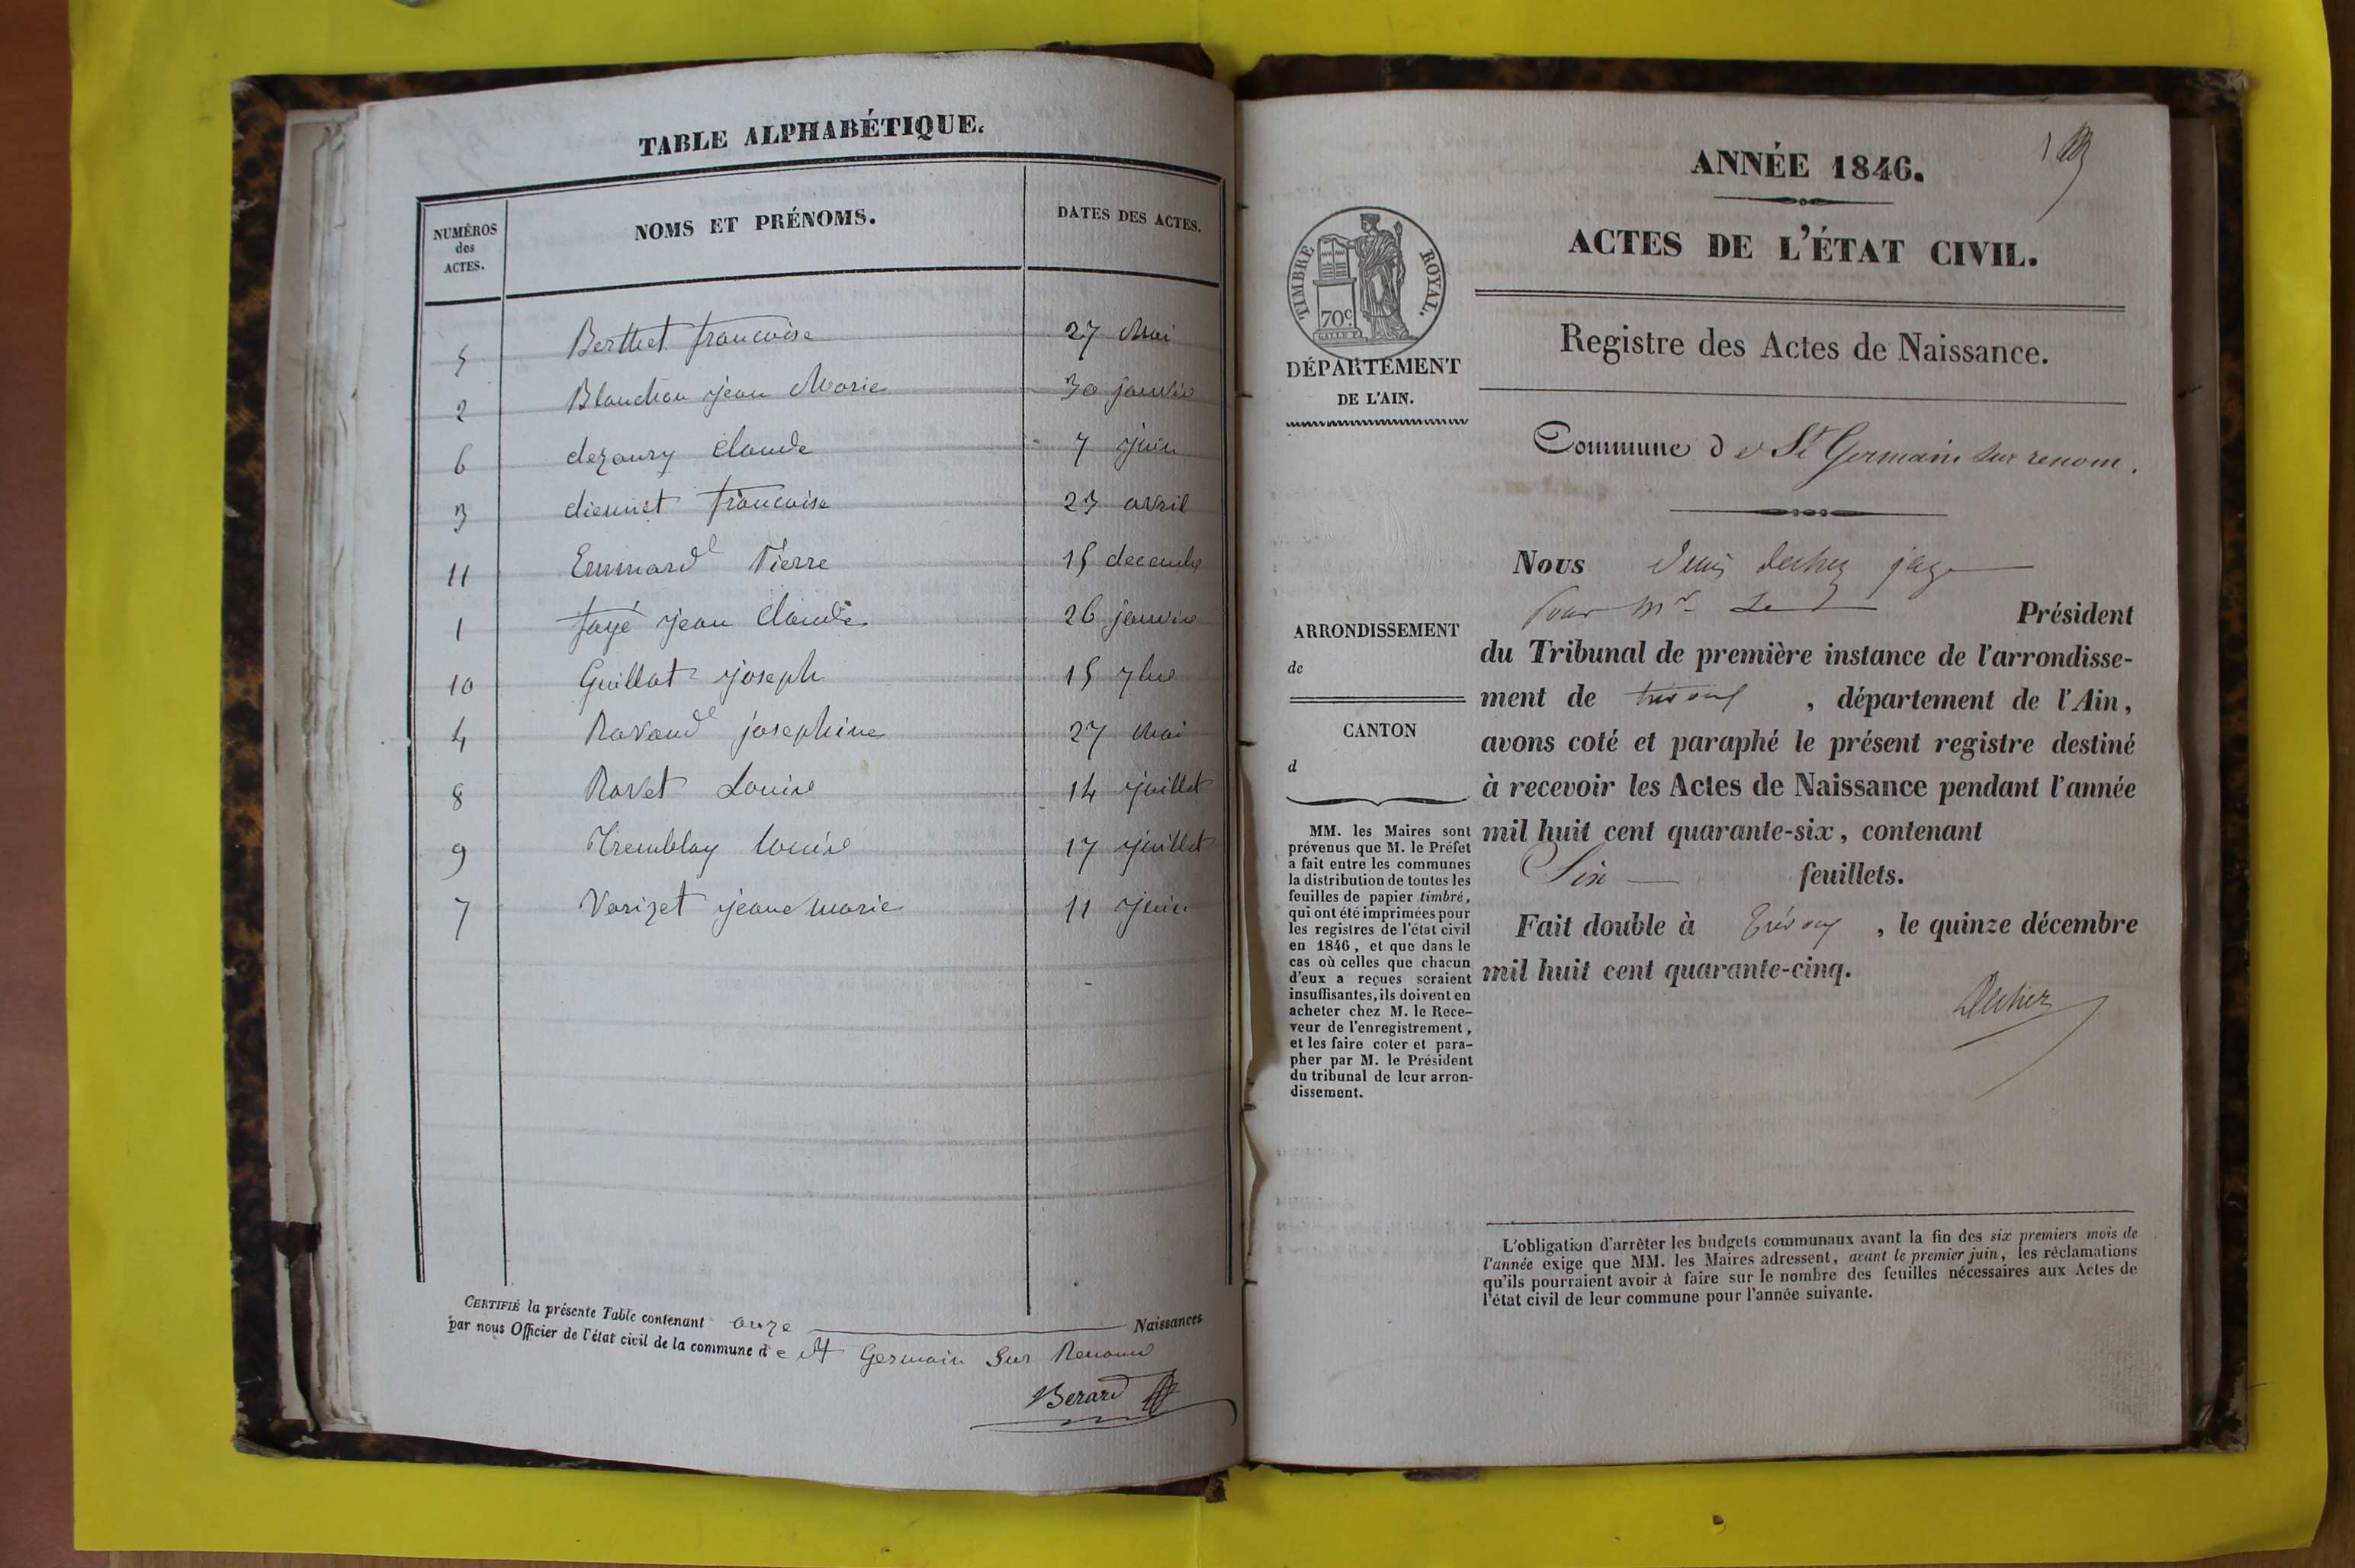 TABLE ALPHABÉTIQUE.
NUMÉROS des ACTES. NOMS ET PRÉNOMS. DATES DES ACTES.
5 Berthet francoise 27 Mai
2 Blanchon jean Marie 30 janvier
6 dezoury Claude 7 juin
3 francoise 23 avril
11 Emmard Pierre 15 decembre
1 fayé jean Claude 26 janvier
10 Guillot joseph 15 7bre
4 Ravaud josephine 27 Mai
8 Ravet Louise 14 juillet
9 Tremblay Louise 17 juillet
7 Varizet jeane Marie 11 juin
CERTIFIÉ la présente Table contenant onze Naissances
par nous Officier de l'état civil de la commune de St Germain Sur Renom
Berard
1
ANNÉE 1846.
ACTES DE L'ÉTAT CIVIL.
TIMBRE ROYAL.
70c
DÉPARTEMENT
DE L'AIN.
Registre des Actes de Naissance.
Commune de St Germain sur renom.
Nous juge
Pour Mr Le Président
du Tribunal de première instance de l'arrondisse-
ment de trévoux, département de l'Ain,
avons coté et paraphé le présent registre destiné
à recevoir les Actes de Naissance pendant l'année
mil huit cent quarante-six, contenant
Six feuillets.
Fait double à Trévoux, le quinze décembre
mil huit cent quarante-cinq.
ARRONDISSEMENT
de
CANTON
d
MM. les Maires sont
prévenus que M. le Préfet
a fait entre les communes
la distribution de toutes les
feuilles de papier timbré,
qui ont été imprimées pour
les registres de l'état civil
en 1846, et que dans le
cas où celles que chacun
d'eux a reçues seraient
insuffisantes, ils doivent en
acheter chez M. le Rece-
veur de l'enregistrement,
et les faire coter et para-
pher par M. le Président
du tribunal de leur arron-
dissement.
L'obligation d'arrêter les budgets communaux avant la fin des six premiers mois de
l'année exige que MM. les Maires adressent, avant le premier juin, les réclamations
qu'ils pourraient avoir à faire sur le nombre des feuilles nécessaires aux Actes de
l'état civil de leur commune pour l'année suivante.